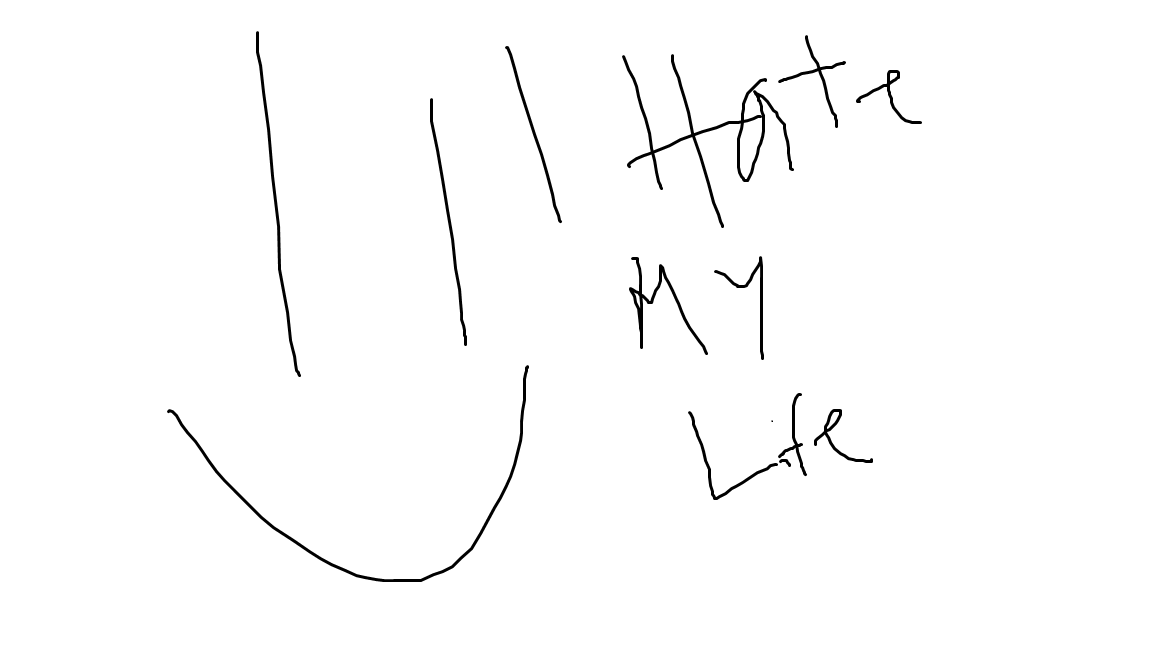 I Hate
My
Life